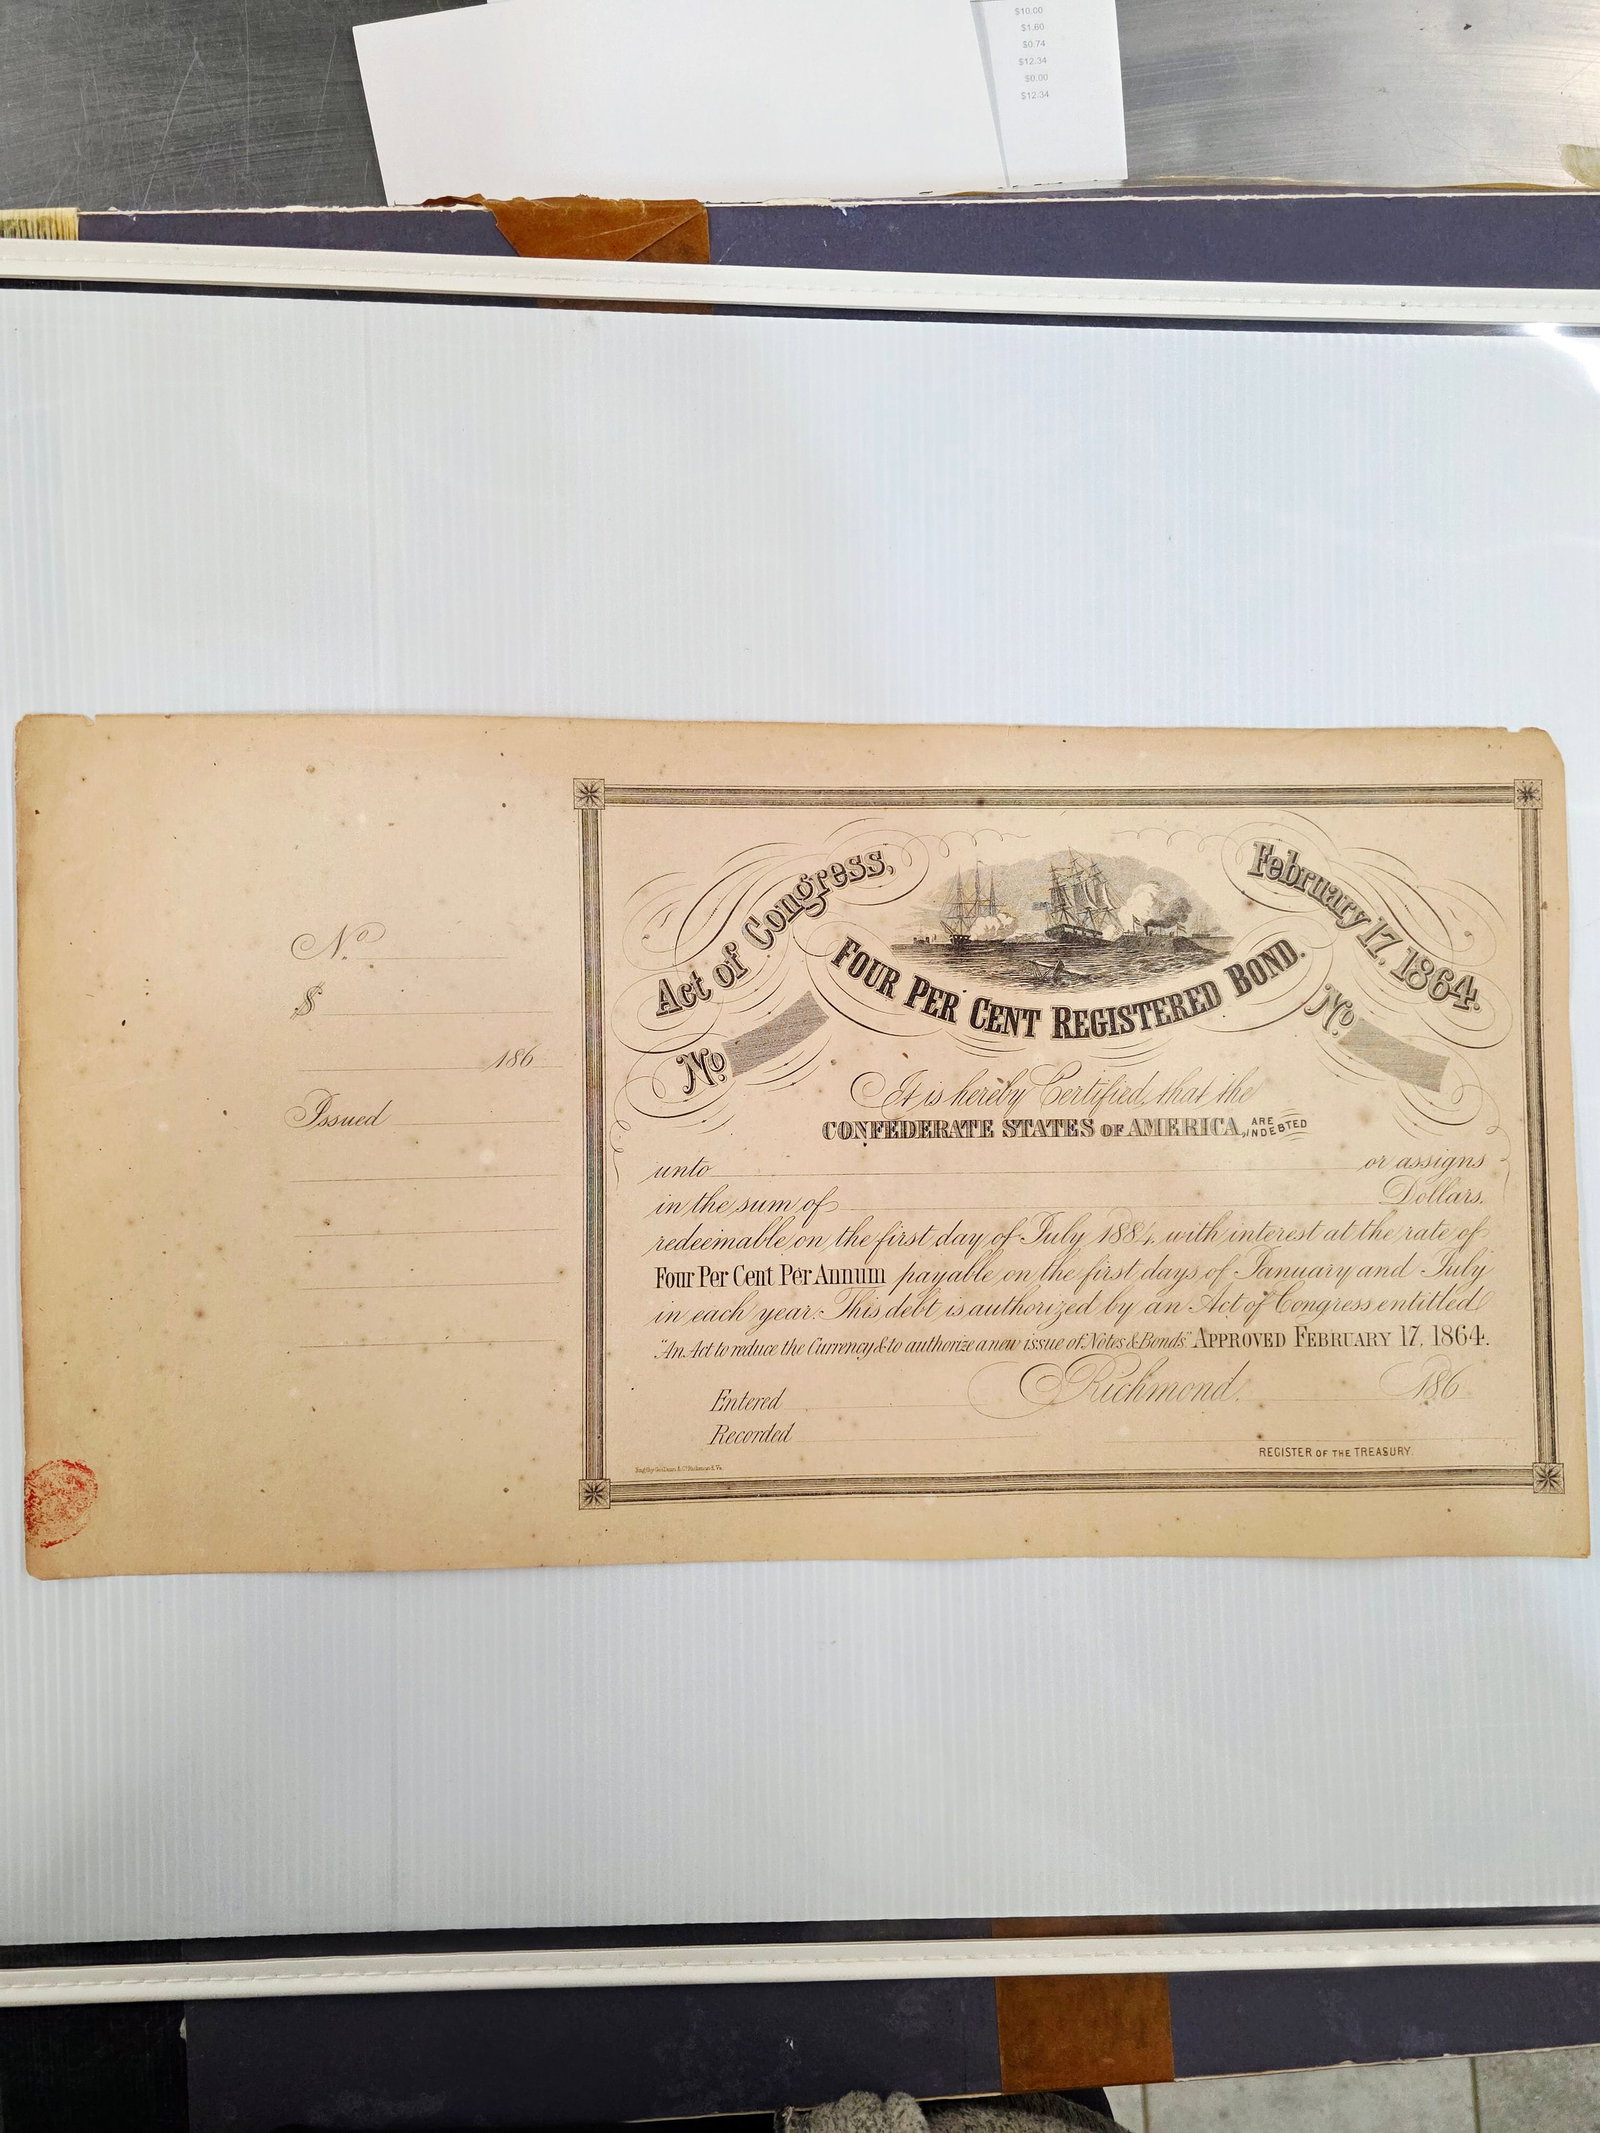 $10.00
$1.60
$0.74
$12.34
$0.00
$12.34
No.
$
186
Issued
Act of Congress, February 17, 1864.
FOUR PER CENT REGISTERED BOND.
No. No.
It is hereby Certified, that the
CONFEDERATE STATES OF AMERICA, ARE INDEBTED
unto or assigns
in the sum of Dollars,
redeemable on the first day of July 1884, with interest at the rate of
Four Per Cent Per Annum payable on the first days of January and July
in each year. This debt is authorized by an Act of Congress entitled
"An Act to reduce the Currency & to authorize a new issue of Notes & Bonds" APPROVED FEBRUARY 17, 1864.
Richmond, 186
Entered
Recorded
REGISTER OF THE TREASURY.